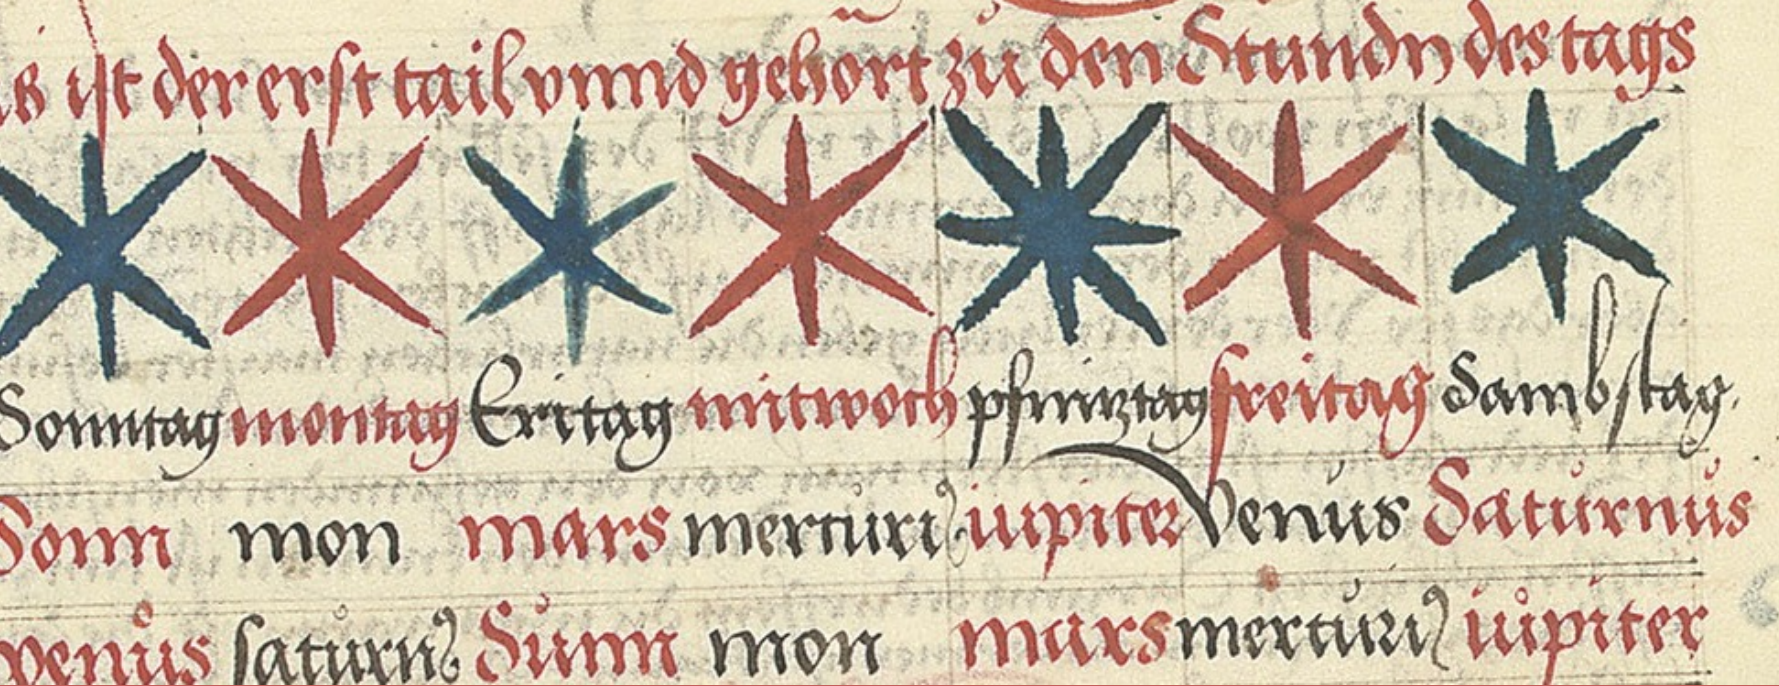 is ist der erst tail vnnd gehört zu den Stundn des tags
Sonntag montag Eritag mitwoch pfinztag freitag Sambstag.
Sonn mon mars mercuri9 iupiter Venus Saturnus
venus saturn9 Sunn mon mars mercuri9 iupiter